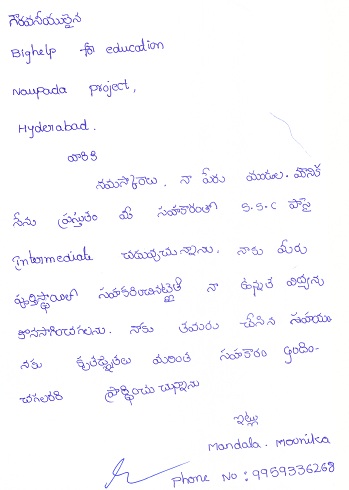 గౌరవనీయులైన
Bighelp for education
Naupada project,
Hyderabad.
వారికి
నమస్కారాలు. నా పేరు మండల. మౌనిక
నేను ప్రస్తుతం మీ సహకారంతో S.S.C పాసై
Intermediate చదువుచున్నాను. నాకు మీరు
పూర్తిస్థాయిలో సహకరించినట్లైతే నా ఉన్నత విద్యను
కొనసాగించగలను. నాకు తమరు చేసిన సహాయం
నకు కృతజ్ఞతలు మరింత సహకారం అందిం-
చగలరని ప్రార్థించు చున్నాను
ఇట్లు
Mandala. Mounika
Phone No: 9959336268